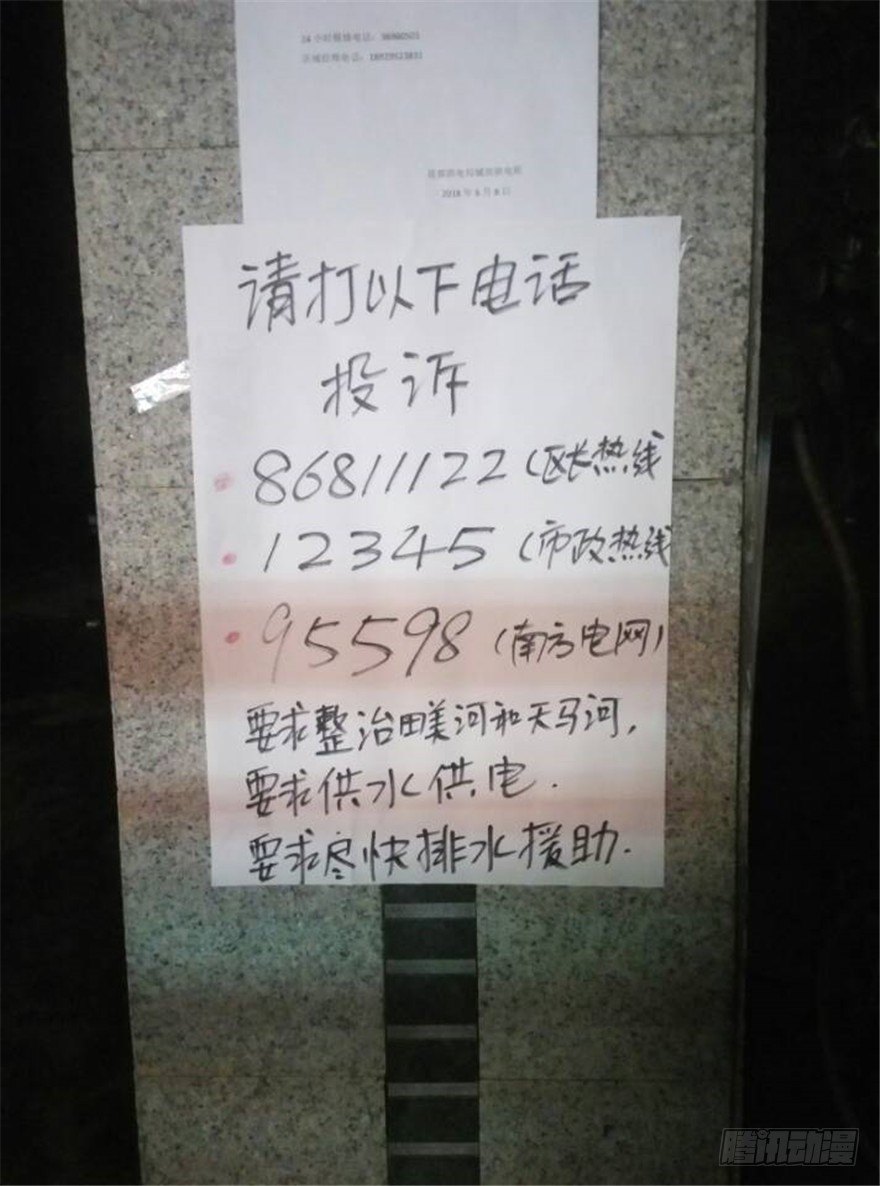 24小时抢修电话：
区域抢修电话：
2018年6月8日
请打以下电话
投诉
86811122（区长热线
12345（市政热线
95598（南方电网）
要求整治田美河和天马河，
要求供水供电.
要求尽快排水援助.
腾讯动漫